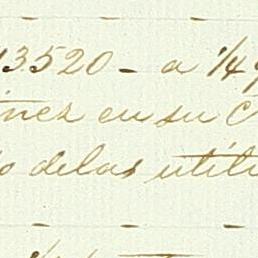 13.520 – a 1/4
inez en su C
o delas utili